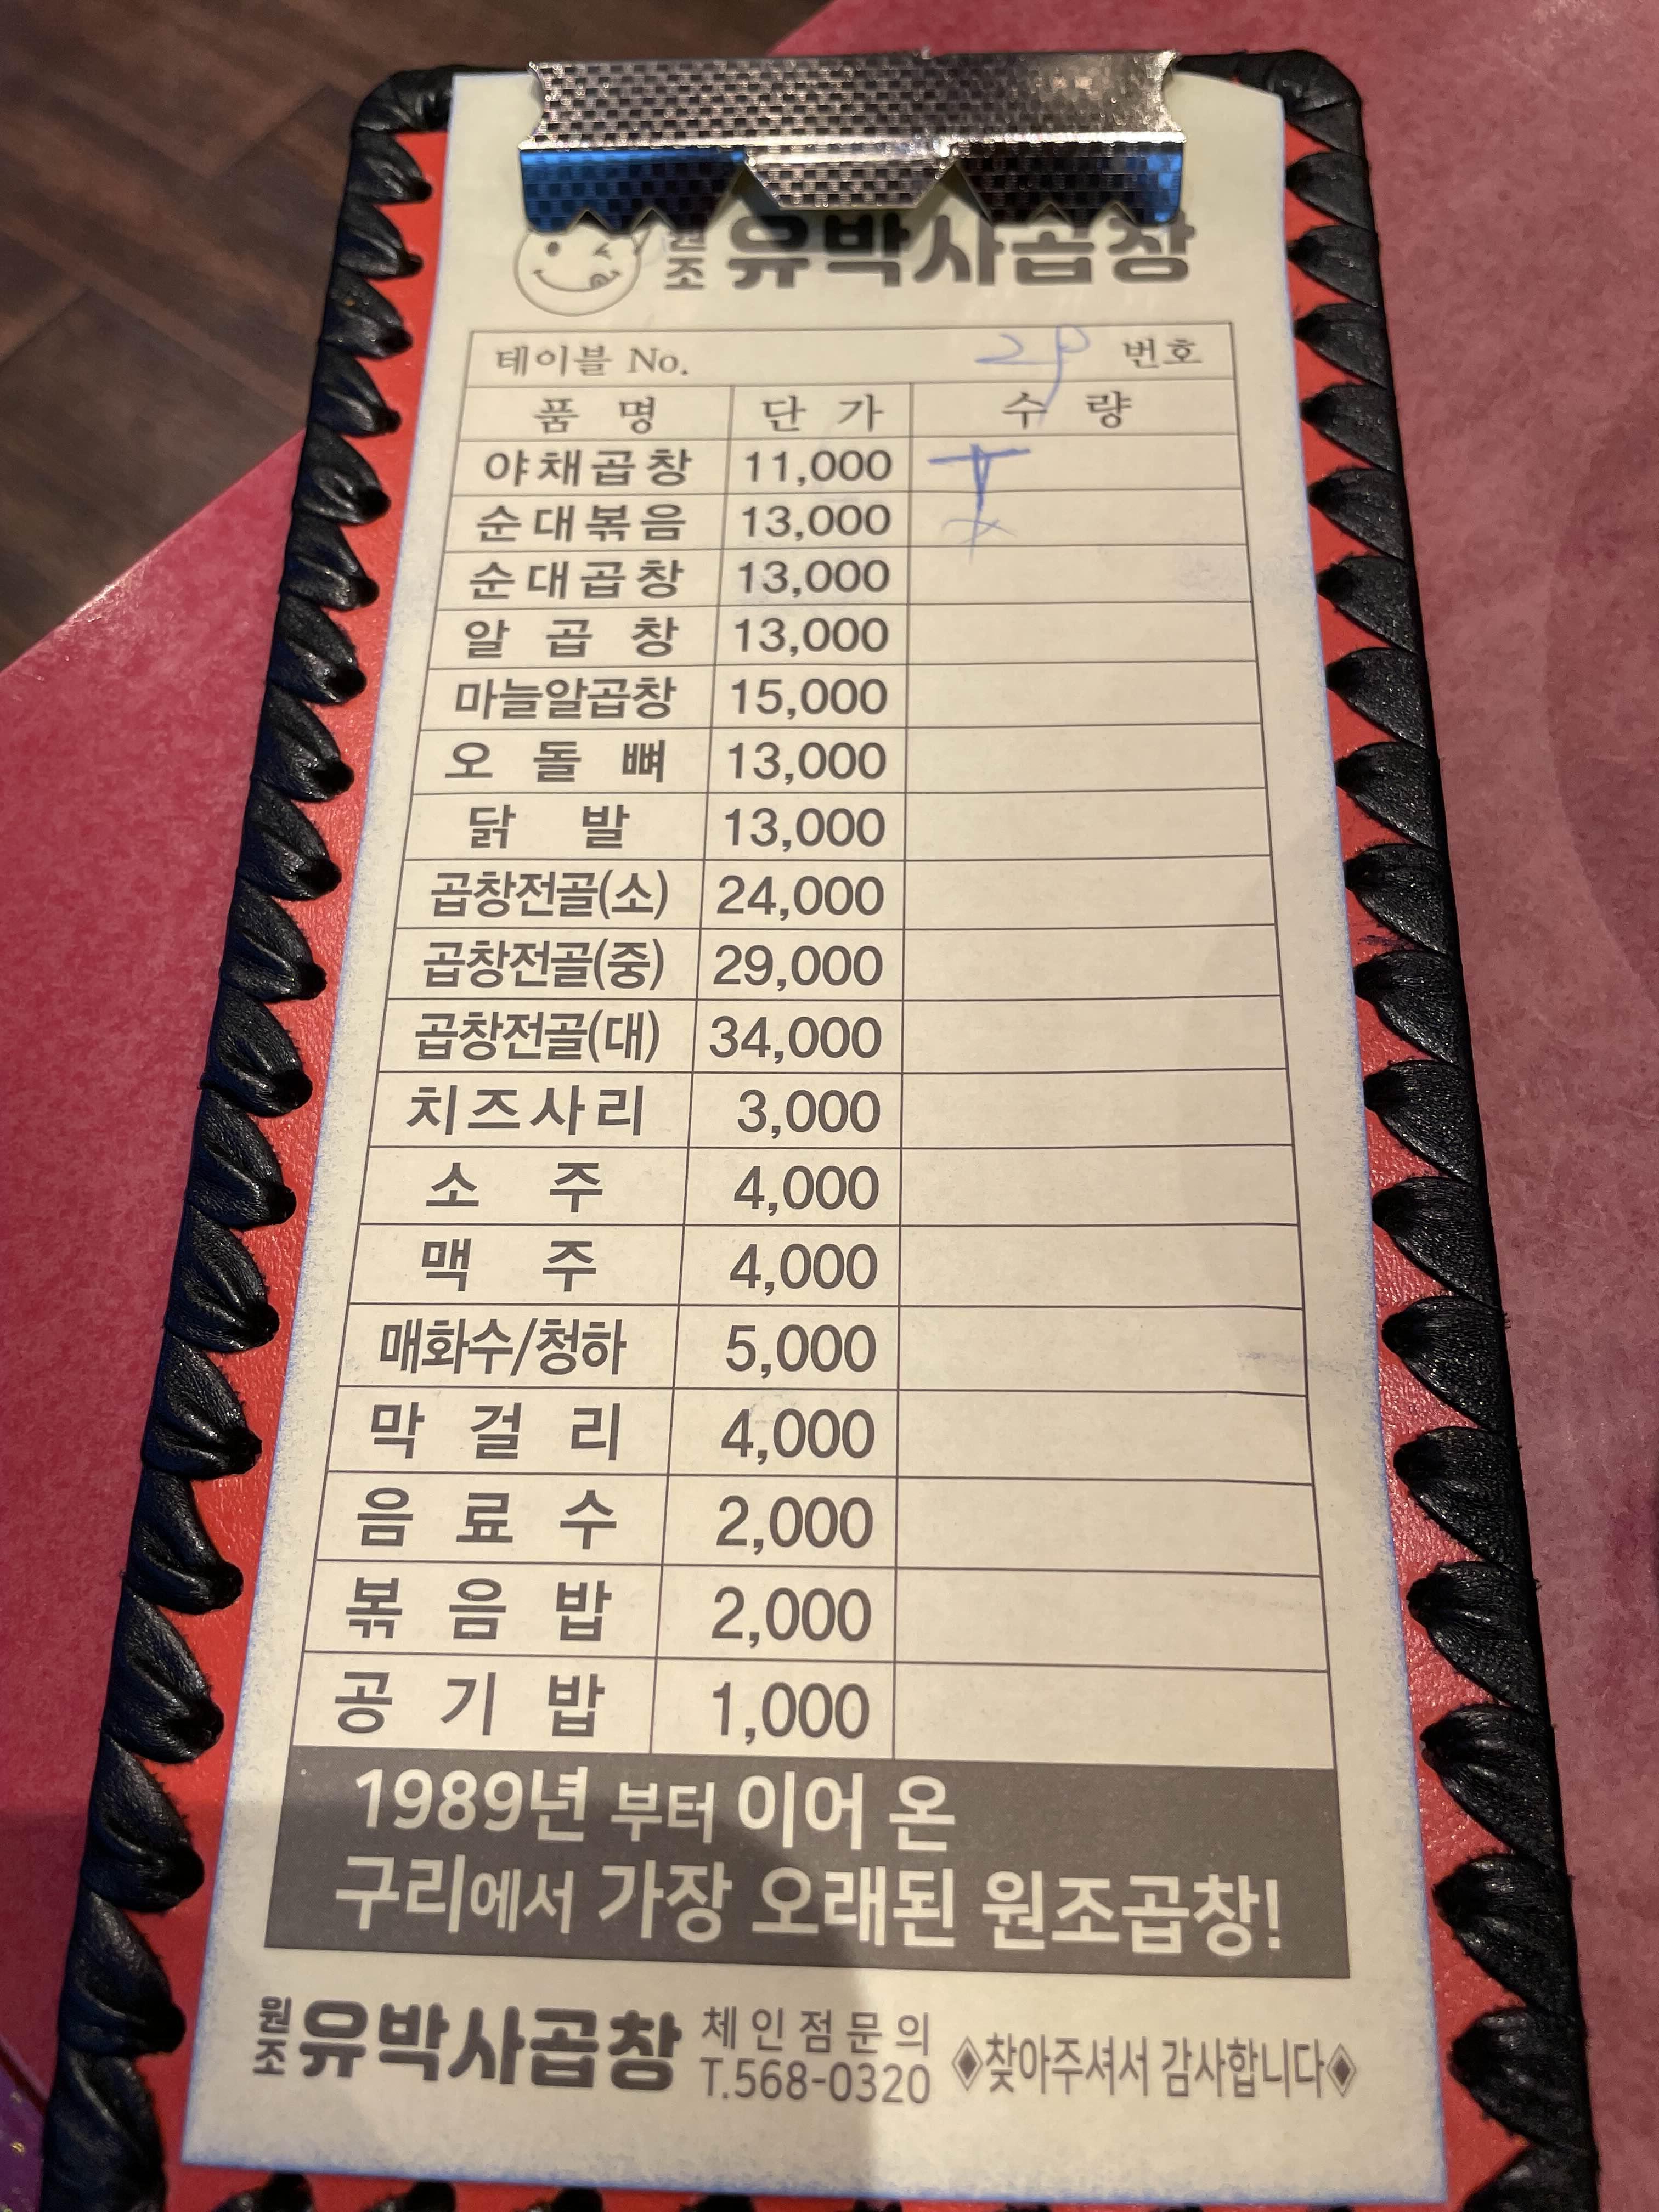 원조 유박사곱창
테이블 No. 29 번호
품 명 단 가 수 량
야채곱창 11,000
순대볶음 13,000
순대곱창 13,000
알 곱 창 13,000
마늘알곱창 15,000
오 돌 뼈 13,000
닭 발 13,000
곱창전골(소) 24,000
곱창전골(중) 29,000
곱창전골(대) 34,000
치즈사리 3,000
소 주 4,000
맥 주 4,000
매화수/청하 5,000
막 걸 리 4,000
음 료 수 2,000
볶 음 밥 2,000
공 기 밥 1,000
1989년 부터 이어 온
구리에서 가장 오래된 원조곱창!
원조 유박사곱창 체인점문의 T.568-0320 ◈찾아주셔서 감사합니다◈